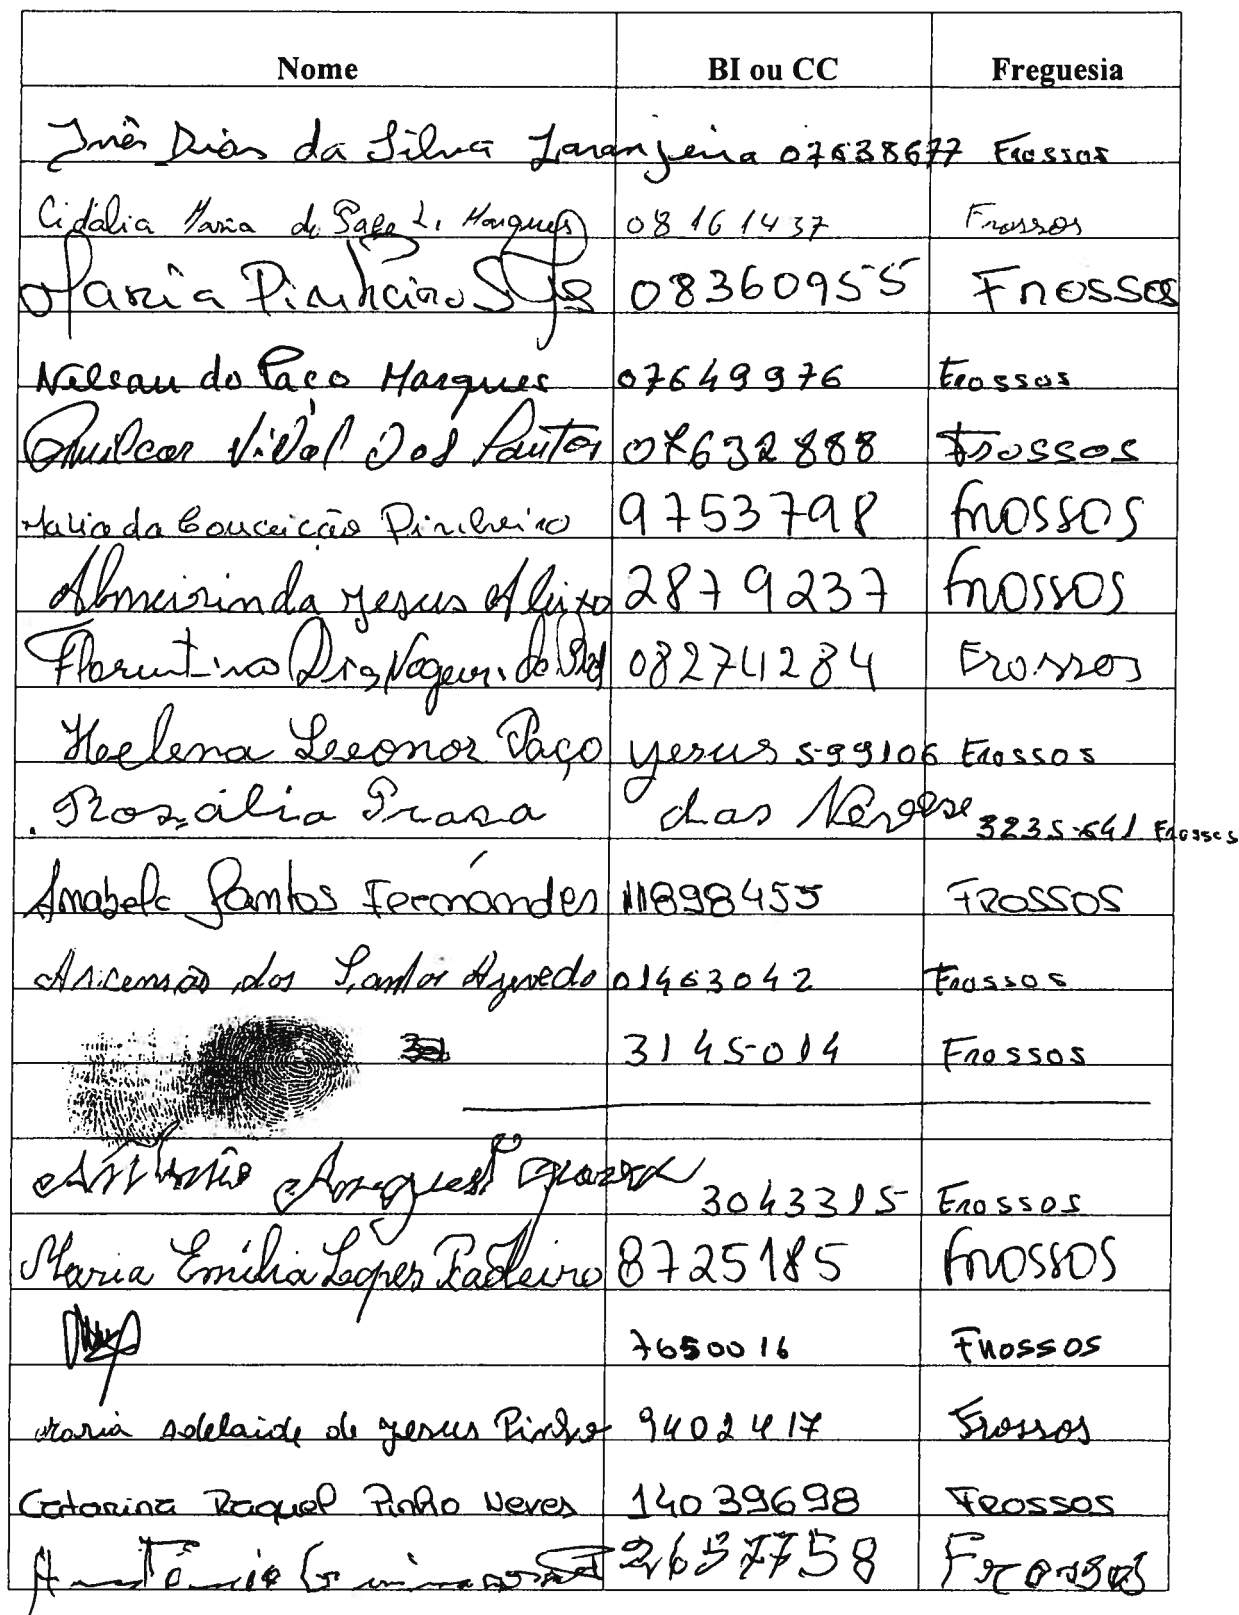 Nome BI ou CC Freguesia
Inês Dias da Silva Laranjeira 07638677 Frossos
Cidália Maria do L. Marques 08161437 Frossos
Maria Pinheiro 08360955 Frossos
Nelson do Paço Marques 07649976 Frossos
Amilcar Vidal Dos Santos 07632888 Frossos
Maria da Conceição Pinheiro 9753798 Frossos
Almeirinda Jesus Aleixo 2879237 Frossos
Florentino Dias Frossos
Heelena Leeonor Paço Jesus 599106 Frossos
Rozália Praza das Neves 3235641 Frossos
Anabela Santos Fernandes 11898455 FROSSOS
Ascensão dos Santos Azevedo 01463042 Frossos
3145014 Frossos
3043315 Frossos
Maria Emília Lopes Padeiro 8725185 Frossos
7650016 Frossos
Maria Adelaide de Jesus Pinho 9402417 Frossos
Catarina Raquel Pinho Neves 14039698 FROSSOS
2657758